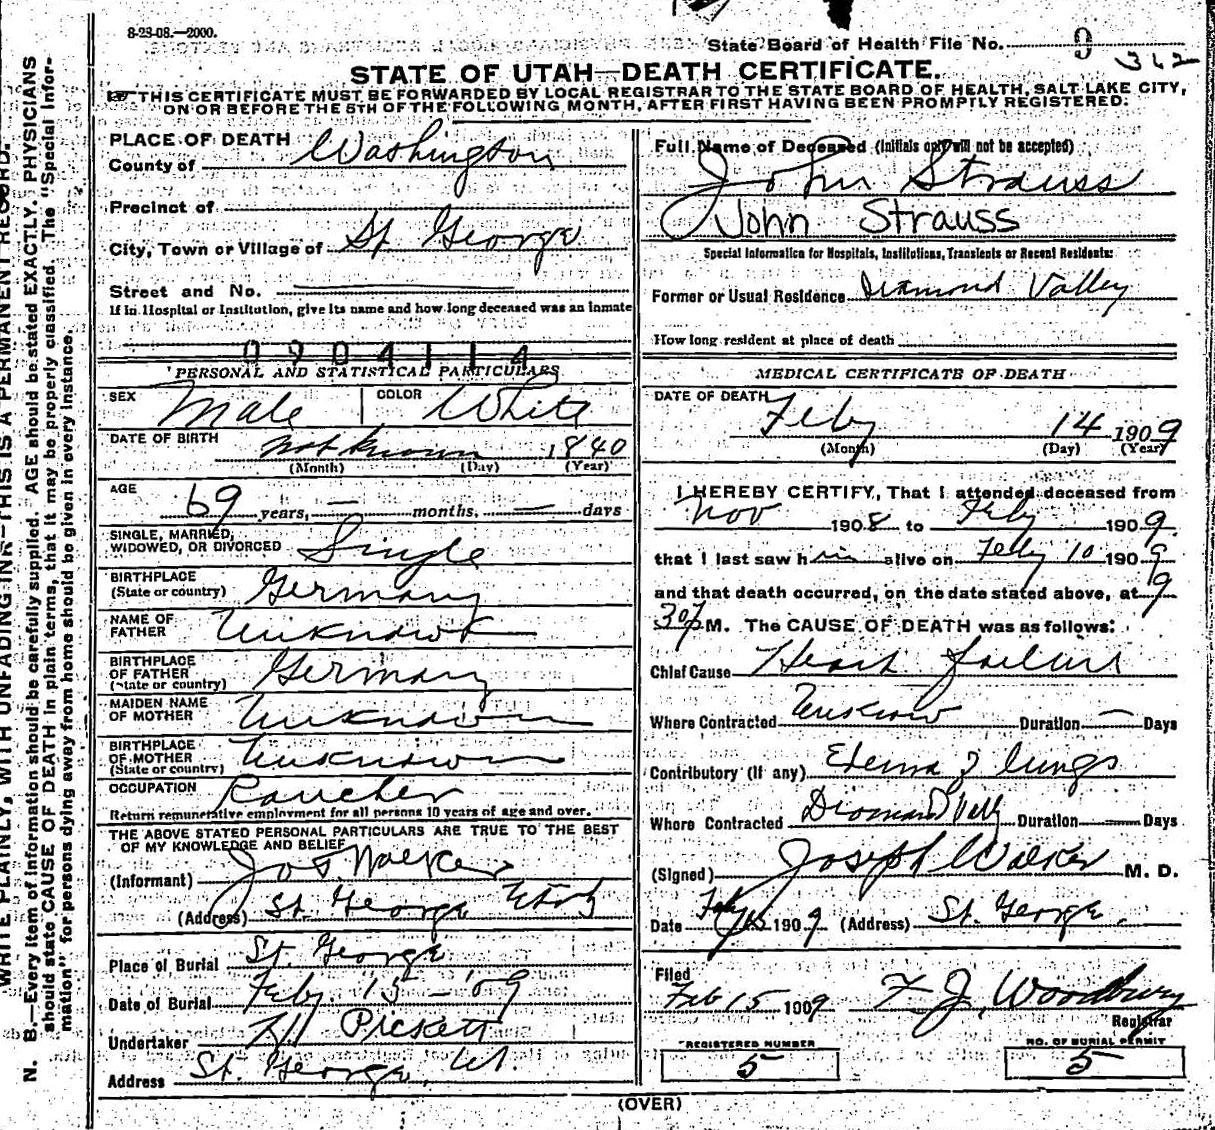 8-23-08.—2000.
State Board of Health File No. 9
312
STATE OF UTAH—DEATH CERTIFICATE.
THIS CERTIFICATE MUST BE FORWARDED BY LOCAL REGISTRAR TO THE STATE BOARD OF HEALTH, SALT LAKE CITY,
ON OR BEFORE THE 5TH OF THE FOLLOWING MONTH, AFTER FIRST HAVING BEEN PROMPTLY REGISTERED.
N. B.—Every item of information should be carefully supplied. AGE should be stated EXACTLY. PHYSICIANS
should state CAUSE OF DEATH in plain terms, that it may be properly classified. The "Special Infor-
mation" for persons dying away from home should be given in every instance.
WRITE PLAINLY, WITH UNFADING INK—THIS IS A PERMANENT RECORD.
PLACE OF DEATH
County of Washington
Precinct of
City, Town or Village of St. George
Street and No.
If in Hospital or Institution, give its name and how long deceased was an inmate
0904114
PERSONAL AND STATISTICAL PARTICULARS
SEX Male COLOR White
DATE OF BIRTH not known 1840
(Month) (Day) (Year)
AGE
69 years, — months, — days
SINGLE, MARRIED,
WIDOWED, OR DIVORCED Single
BIRTHPLACE
(State or country) Germany
NAME OF
FATHER Unknown
BIRTHPLACE
OF FATHER
(State or country) Germany
MAIDEN NAME
OF MOTHER Unknown
BIRTHPLACE
OF MOTHER
(State or country) Unknown
OCCUPATION Rancher
Return remunerative employment for all persons 10 years of age and over.
THE ABOVE STATED PERSONAL PARTICULARS ARE TRUE TO THE BEST
OF MY KNOWLEDGE AND BELIEF
(Informant) Jos. Walker
(Address) St. George Utah
Place of Burial St. George
Date of Burial Feby. 15 - '09
Undertaker Pickett
Address St. George, Ut.
Full Name of Deceased (Initials only will not be accepted)
John Strauss
John Strauss
Special Information for Hospitals, Institutions, Transients or Recent Residents:
Former or Usual Residence Diamond Valley
How long resident at place of death
MEDICAL CERTIFICATE OF DEATH
DATE OF DEATH
Feby 14 1909
(Month) (Day) (Year)
I HEREBY CERTIFY, That I attended deceased from
Nov 1908 to Feby 1909
that I last saw him alive on Feby 10 1909
and that death occurred, on the date stated above, at 9
30 M. The CAUSE OF DEATH was as follows:
Chief Cause Heart failure
Where Contracted Unknown Duration — Days
Contributory (If any) Edema of lungs
Where Contracted Diamond Vally Duration — Days
(Signed) Joseph Walker M. D.
Date Feby 1909 (Address) St. George.
Filed
Feb 15 1909 F J Woodbury
Registrar
REGISTERED NUMBER
5
NO. OF BURIAL PERMIT
5
(OVER)